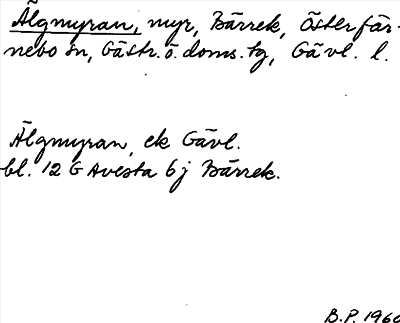 Älgmyran, myr, Bärrek, Österfär-
nebo sn, Gästr. ö. doms. tg, Gävl. l.
Älgmyran, ek Gävl.
bl. 12 G Avesta 6j Bärrek.
B.P. 1960